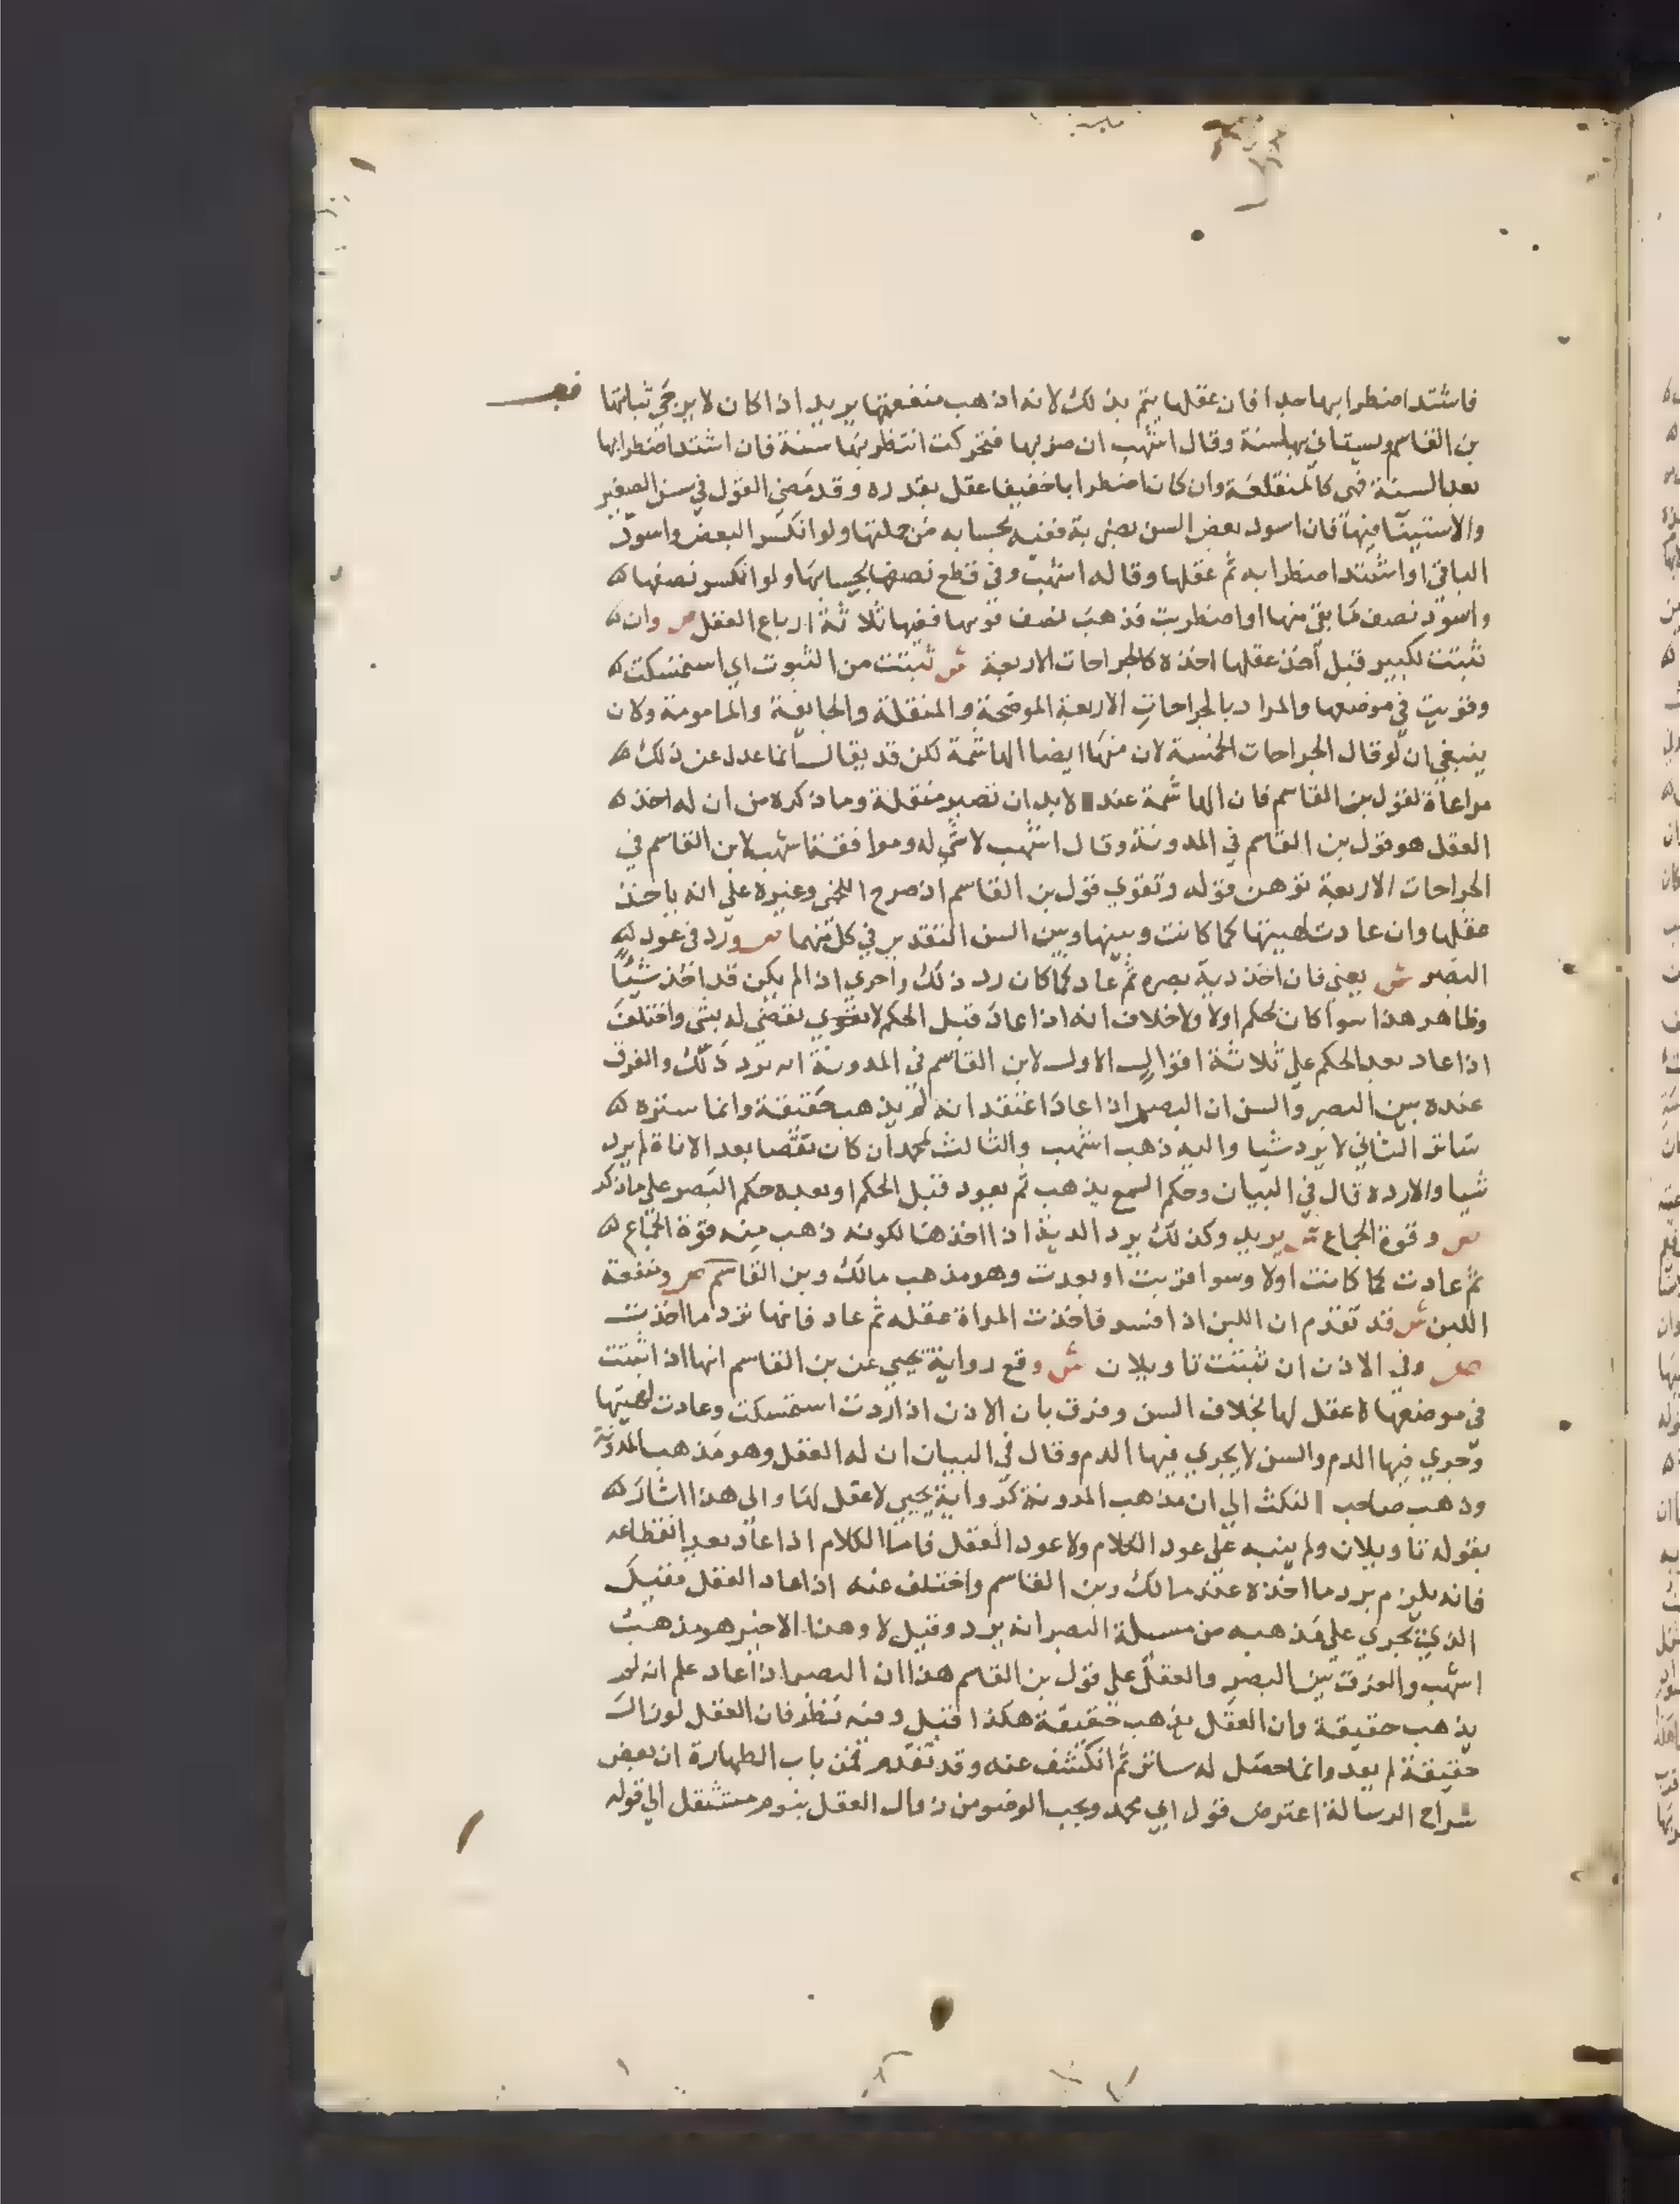 فاشتد اضطرابها جدا فان عقلها يتم بذلك لانه اذهب منفعتها يريد اذا كان لا يرجى ثباتها
بن القاسم ويستانى بها سنة وقال اشهب ان ضربها فتحركت انتظر بها سنة فان اشتد اضطرابها
بعد السنة فهي كالمنقلعة وان كان اضطرابا خفيفا عقل بقدره وقد مضى القول في سن الصغير
والاستينا فيها فان اسود بعض السن بضربة ففيه بحسابه من جملتها ولو انكسر البعض واسود
الباقي او اشتد اضطرابه تم عقلها وقاله اشهب وفي قطع نصفها بحسابها ولو انكسر نصفها
واسود نصف ما بقي منها او اضطربت فذهب نصف قوتها ففيها ثلاثة ارباع العقل ص وان
ثبتت لكبير قبل اخذ عقلها اخذه كالجراحات الاربعة ش ثبتت من الثبوت اي استمسكت
وقويت في موضعها والمراد بالجراحات الاربعة الموضحة والمنقلة والجايفة والمامومة ولان
ينبغي ان لو قال الجراحات الخمسة لان منها ايضا الهاشمة لكن قد يقال انما عدل عن ذلك
مراعاة لقول بن القاسم فان الهاشمة عنده لا بد ان تصير منقلة وما ذكره من ان له اخذ
العقل هو قول بن القاسم في المدونة وقال اشهب لا شي له وموافقة اشهب لابن القاسم في
الجراحات الاربعة توهن قوله وتقوي قول بن القاسم اذ صرح اللخمي وغيره على انه ياخذ
عقلها وان عادت لهيئتها كما كانت وبينها وبين السن التقدير في كل منهما ص ورد في عود
البصر ش يعني فان اخذ دية بصره ثم عاد كما كان رد ذلك واحرى اذا لم يكن قد اخذ شيئا
وظاهر هذا سوا كان بحكم اولا ولا خلاف انه اذا عاد قبل الحكم لا يقضى له بشي واختلف
اذا عاد بعد الحكم على ثلاثة اقوال الاول لابن القاسم في المدونة انه يرد ذلك والفرق
عنده بين البصر والسن ان البصر اذا عاد اعتقد انه لم يذهب حقيقة وانما ستره
ساتر الثاني لا يرد شيا واليه ذهب اشهب والثالث لمحمد ان كان بقضا بعد الاناة لم يرد
شيا والا رده قال في البيان وحكم السمع يذهب ثم يعود قبل الحكم او بعده حكم البصر على ما ذكر
ص وقوة الجماع ش يريد وكذلك يرد الدية اذا اخذها لكونه ذهب منه قوة الجماع
ثم عادت كما كانت اولا وسوا قربت او بعدت وهو مذهب مالك وبن القاسم ص ومنفعة
اللبن ش قد تقدم ان اللبن اذا افسد فاخذت المراة عقله ثم عاد فانها ترد ما اخذت
ص وفي الاذن ان ثبتت تاويلان ش وقع رواية يحيى عن بن القاسم انها اذا ثبتت
في موضعها لا عقل لها بخلاف السن وفرق بان الاذن اذا ردت استمسكت وعادت لهيئتها
وجرى فيها الدم والسن لا يجري فيها الدم وقال في البيان ان له العقل وهو مذهب المدونة
وذهب صاحب النكث الى ان مذهب المدونة كرواية يحيى لا عقل لها والى هذا اشار
بقوله تاويلان ولم ينبه على عود الكلام ولا عود العقل فاما الكلام اذا عاد بعد انقطاعه
فانه يلزم برد ما اخذه عند مالك وبن القاسم واختلف عنه اذا عاد العقل فقيل
الذي يجري على مذهبه من مسيلة البصر انه يرد وقيل لا وهذا الاخير هو مذهب
اشهب والفرق بين البصر والعقل على قول بن القاسم هذا ان البصر اذا عاد علم انه لم
يذهب حقيقة وان العقل يذهب حقيقة هكذا قيل وفيه نظر فان العقل لو زال
حقيقة لم يعد وانما حصل له ساتر ثم انكشف عنه وقد تقدم في باب الطهارة ان بعض
شراح الرسالة اعترض قول ابي محمد ويجب الوضو من زوال العقل بنوم مستثقل الى قوله